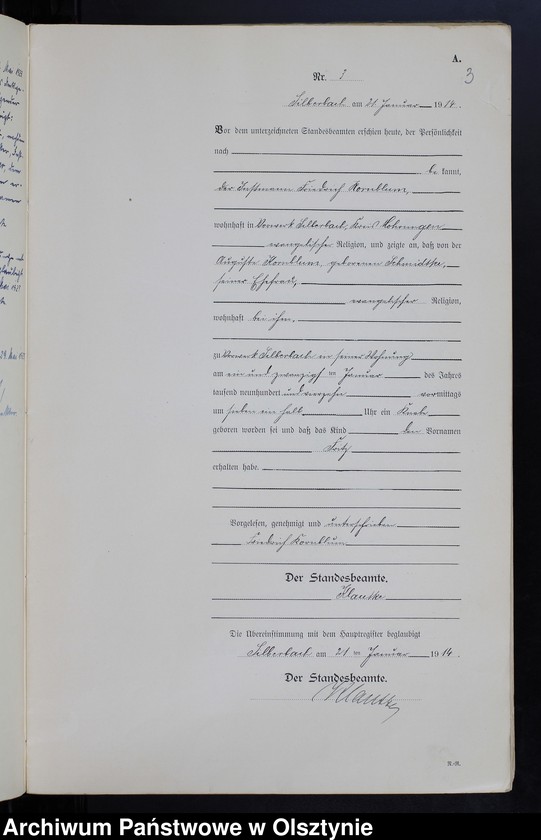 A.
3
Nr. 3
Silberbach am 21. Januar 1914.
Vor dem unterzeichneten Standesbeamten erschien heute, der Persönlichkeit
nach
be kannt,
der Instmann Friedrich Kornblum,
wohnhaft in Vorwerk Silberbach, Kreis Mohrungen
evangelischer Religion, und zeigte an, daß von der
Auguste Kornblum geborenen Schmidtke,
seiner Ehefrau,
evangelischer Religion,
wohnhaft bei ihm,
zu Vorwerk Silberbach in seiner Wohnung
am ein und zwanzigsten Januar des Jahres
tausend neunhundert und vierzehn vormittags
um sieben ein halb Uhr ein Knabe
geboren worden sei und daß das Kind den Vornamen
Fritz
erhalten habe.
Vorgelesen, genehmigt und unterschrieben
Friedrich Kornblum
Der Standesbeamte.
Klautke
Die Übereinstimmung mit dem Hauptregister beglaubigt
Silberbach am 21 ten Januar 1914.
Der Standesbeamte.
Klautke
Archiwum Państwowe w Olsztynie